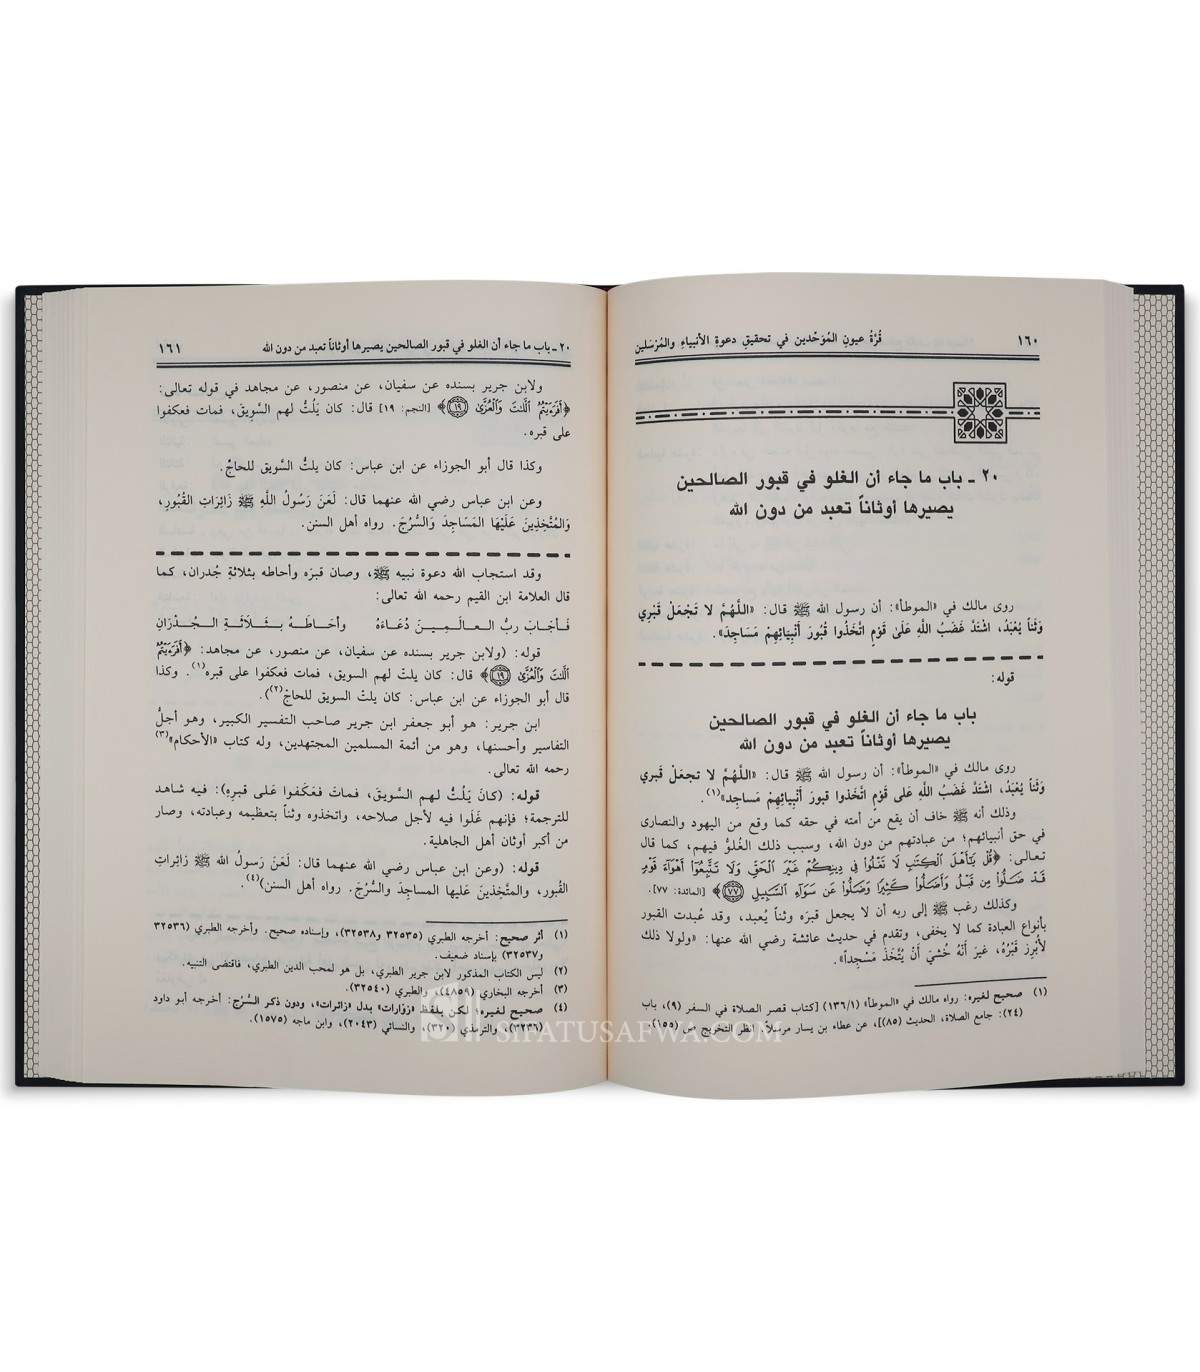 ١٦٠ قُرَّةُ عيونِ المُوَحِّدين في تحقيقِ دعوةِ الأنبياءِ والمُرْسَلين
٢٠ ـ باب ما جاء أن الغلو في قبور الصالحين
يصيرها أوثاناً تعبد من دون الله
روى مالك في «الموطأ»: أن رسول الله ﷺ قال: «اللَّهُمَّ لا تَجعَلْ قَبْرِي
وَثَناً يُعْبَدُ، اشْتَدَّ غَضَبُ اللَّهِ عَلَىٰ قَوْمٍ اتَّخَذُوا قُبُورَ أَنْبِيَائِهِمْ مَسَاجِدَ».
قوله:
باب ما جاء أن الغلو في قبور الصالحين
يصيرها أوثاناً تعبد من دون الله
روى مالك في «الموطأ»: أن رسول الله ﷺ قال: «اللَّهُمَّ لا تجعَلْ قَبري
وَثَناً يُعْبَدُ، اشْتَدَّ غَضَبُ اللَّهِ عَلى قَوْمٍ اتَّخَذوا قبورَ أَنْبِيائِهِمْ مَساجِد»(١).
وذلك أنه ﷺ خاف أن يقع من أمته في حقه كما وقع من اليهود والنصارى
في حق أنبيائهم؛ من عبادتهم من دون الله، وسبب ذلك الغُلوُّ فيهم، كما قال
تعالى: ﴿قُلْ يَٰٓأَهْلَ ٱلْكِتَٰبِ لَا تَغْلُوا۟ فِى دِينِكُمْ غَيْرَ ٱلْحَقِّ وَلَا تَتَّبِعُوٓا۟ أَهْوَآءَ قَوْمٍ
قَدْ ضَلُّوا۟ مِن قَبْلُ وَأَضَلُّوا۟ كَثِيرًا وَضَلُّوا۟ عَن سَوَآءِ ٱلسَّبِيلِ ٧٧﴾ [المائدة: ٧٧].
وكذلك رغب ﷺ إلى ربه أن لا يجعل قبرَه وثناً يُعبد، وقد عُبدت القبور
بأنواع العبادة كما لا يخفى، وتقدم في حديث عائشة رضي الله عنها: «ولولا ذلك
لأُبْرِزَ قَبْرُهُ، غيرَ أَنَّهُ خُشيَ أَنْ يُتَّخَذَ مَسْجِداً».
(١) صحيح لغيره: رواه مالك في «الموطأ» (١٣٦/١) [كتاب قصر الصلاة في السفر (٩)، باب
(٢٤): جامع الصلاة، الحديث (٨٥)]، عن عطاء بن يسار مرسلاً. انظر التخريج ص (١٥٥).
٢٠ ـ باب ما جاء أن الغلو في قبور الصالحين يصيرها أوثاناً تعبد من دون الله ١٦١
ولابن جرير بسنده عن سفيان، عن منصور، عن مجاهد في قوله تعالى:
﴿أَفَرَءَيْتُمُ ٱللَّٰتَ وَٱلْعُزَّىٰ ١٩﴾ [النجم: ١٩] قال: كان يَلُتُّ لهم السَّوِيقَ، فمات فعكفوا
على قبره.
وكذا قال أبو الجوزاء عن ابن عباس: كان يلتُّ السَّويق للحاجِّ.
وعن ابن عباس رضي الله عنهما قال: لَعَنَ رَسُولُ اللَّهِ ﷺ زَائِرَاتِ القُبُورِ،
وَالمُتَّخِذِينَ عَلَيْهَا المَسَاجِدَ وَالسُّرُجَ. رواه أهل السنن.
وقد استجاب الله دعوة نبيه ﷺ، وصان قبرَه وأحاطه بثلاثةِ جُدران، كما
قال العلامة ابن القيم رحمه الله تعالى:
فَأَجَابَ ربُّ العالَمِينَ دُعَاءَهُ وأحَاطَهُ بثَلَاثَةِ الجُدْرَانِ
قوله: (ولابن جرير بسنده عن سفيان، عن منصور، عن مجاهد: ﴿أَفَرَءَيْتُمُ
ٱللَّٰتَ وَٱلْعُزَّىٰ ١٩﴾ قال: كان يَلتُ لهم السويق، فمات فعكفوا على قبره(١). وكذا
قال أبو الجوزاء عن ابن عباس: كان يلتّ السويق للحاجّ(٢)).
ابن جرير: هو أبو جعفر ابن جرير صاحب التفسير الكبير، وهو أجلُّ
التفاسير وأحسنها، وهو من أئمة المسلمين المجتهدين، وله كتاب «الأحكام»(٣)
رحمه الله تعالى.
قوله: (كانَ يَلُتُّ لهم السَّويقَ، فماتَ فعَكَفوا عَلى قبرِهِ): فيه شاهد
للترجمة؛ فإنهم غَلَوا فيه لأجل صلاحه، واتخذوه وثناً بتعظيمه وعبادته، وصار
من أكبر أوثان أهل الجاهلية.
قوله: (وعن ابن عباس رضي الله عنهما قال: لَعَنَ رَسولُ الله ﷺ زَائِراتِ
القُبور، والمتَّخِذينَ عَليها المساجِدَ والسُّرُجَ. رواه أهل السنن)(٤).
(١) أثر صحيح: أخرجه الطبري (٣٢٥٣٥ و٣٢٥٣٨)، وإسناده صحيح. وأخرجه الطبري (٣٢٥٣٦
و٣٢٥٣٧) بإسناد ضعيف.
(٢) ليس الكتاب المذكور لابن جرير الطبري، بل هو لمحب الدين الطبري، فاقتضى التنبيه.
(٣) أخرجه البخاري (٤٨٥٩)، والطبري (٣٢٥٤٠).
(٤) صحيح لغيره؛ لكن بلفظ «زوّارات» بدل «زائرات»، ودون ذكر السُّرج: أخرجه أبو داود
(٣٢٣٦)، والترمذي (٣٢٠)، والنسائي (٢٠٤٣)، وابن ماجه (١٥٧٥).
SIFATUSAFWA.COM